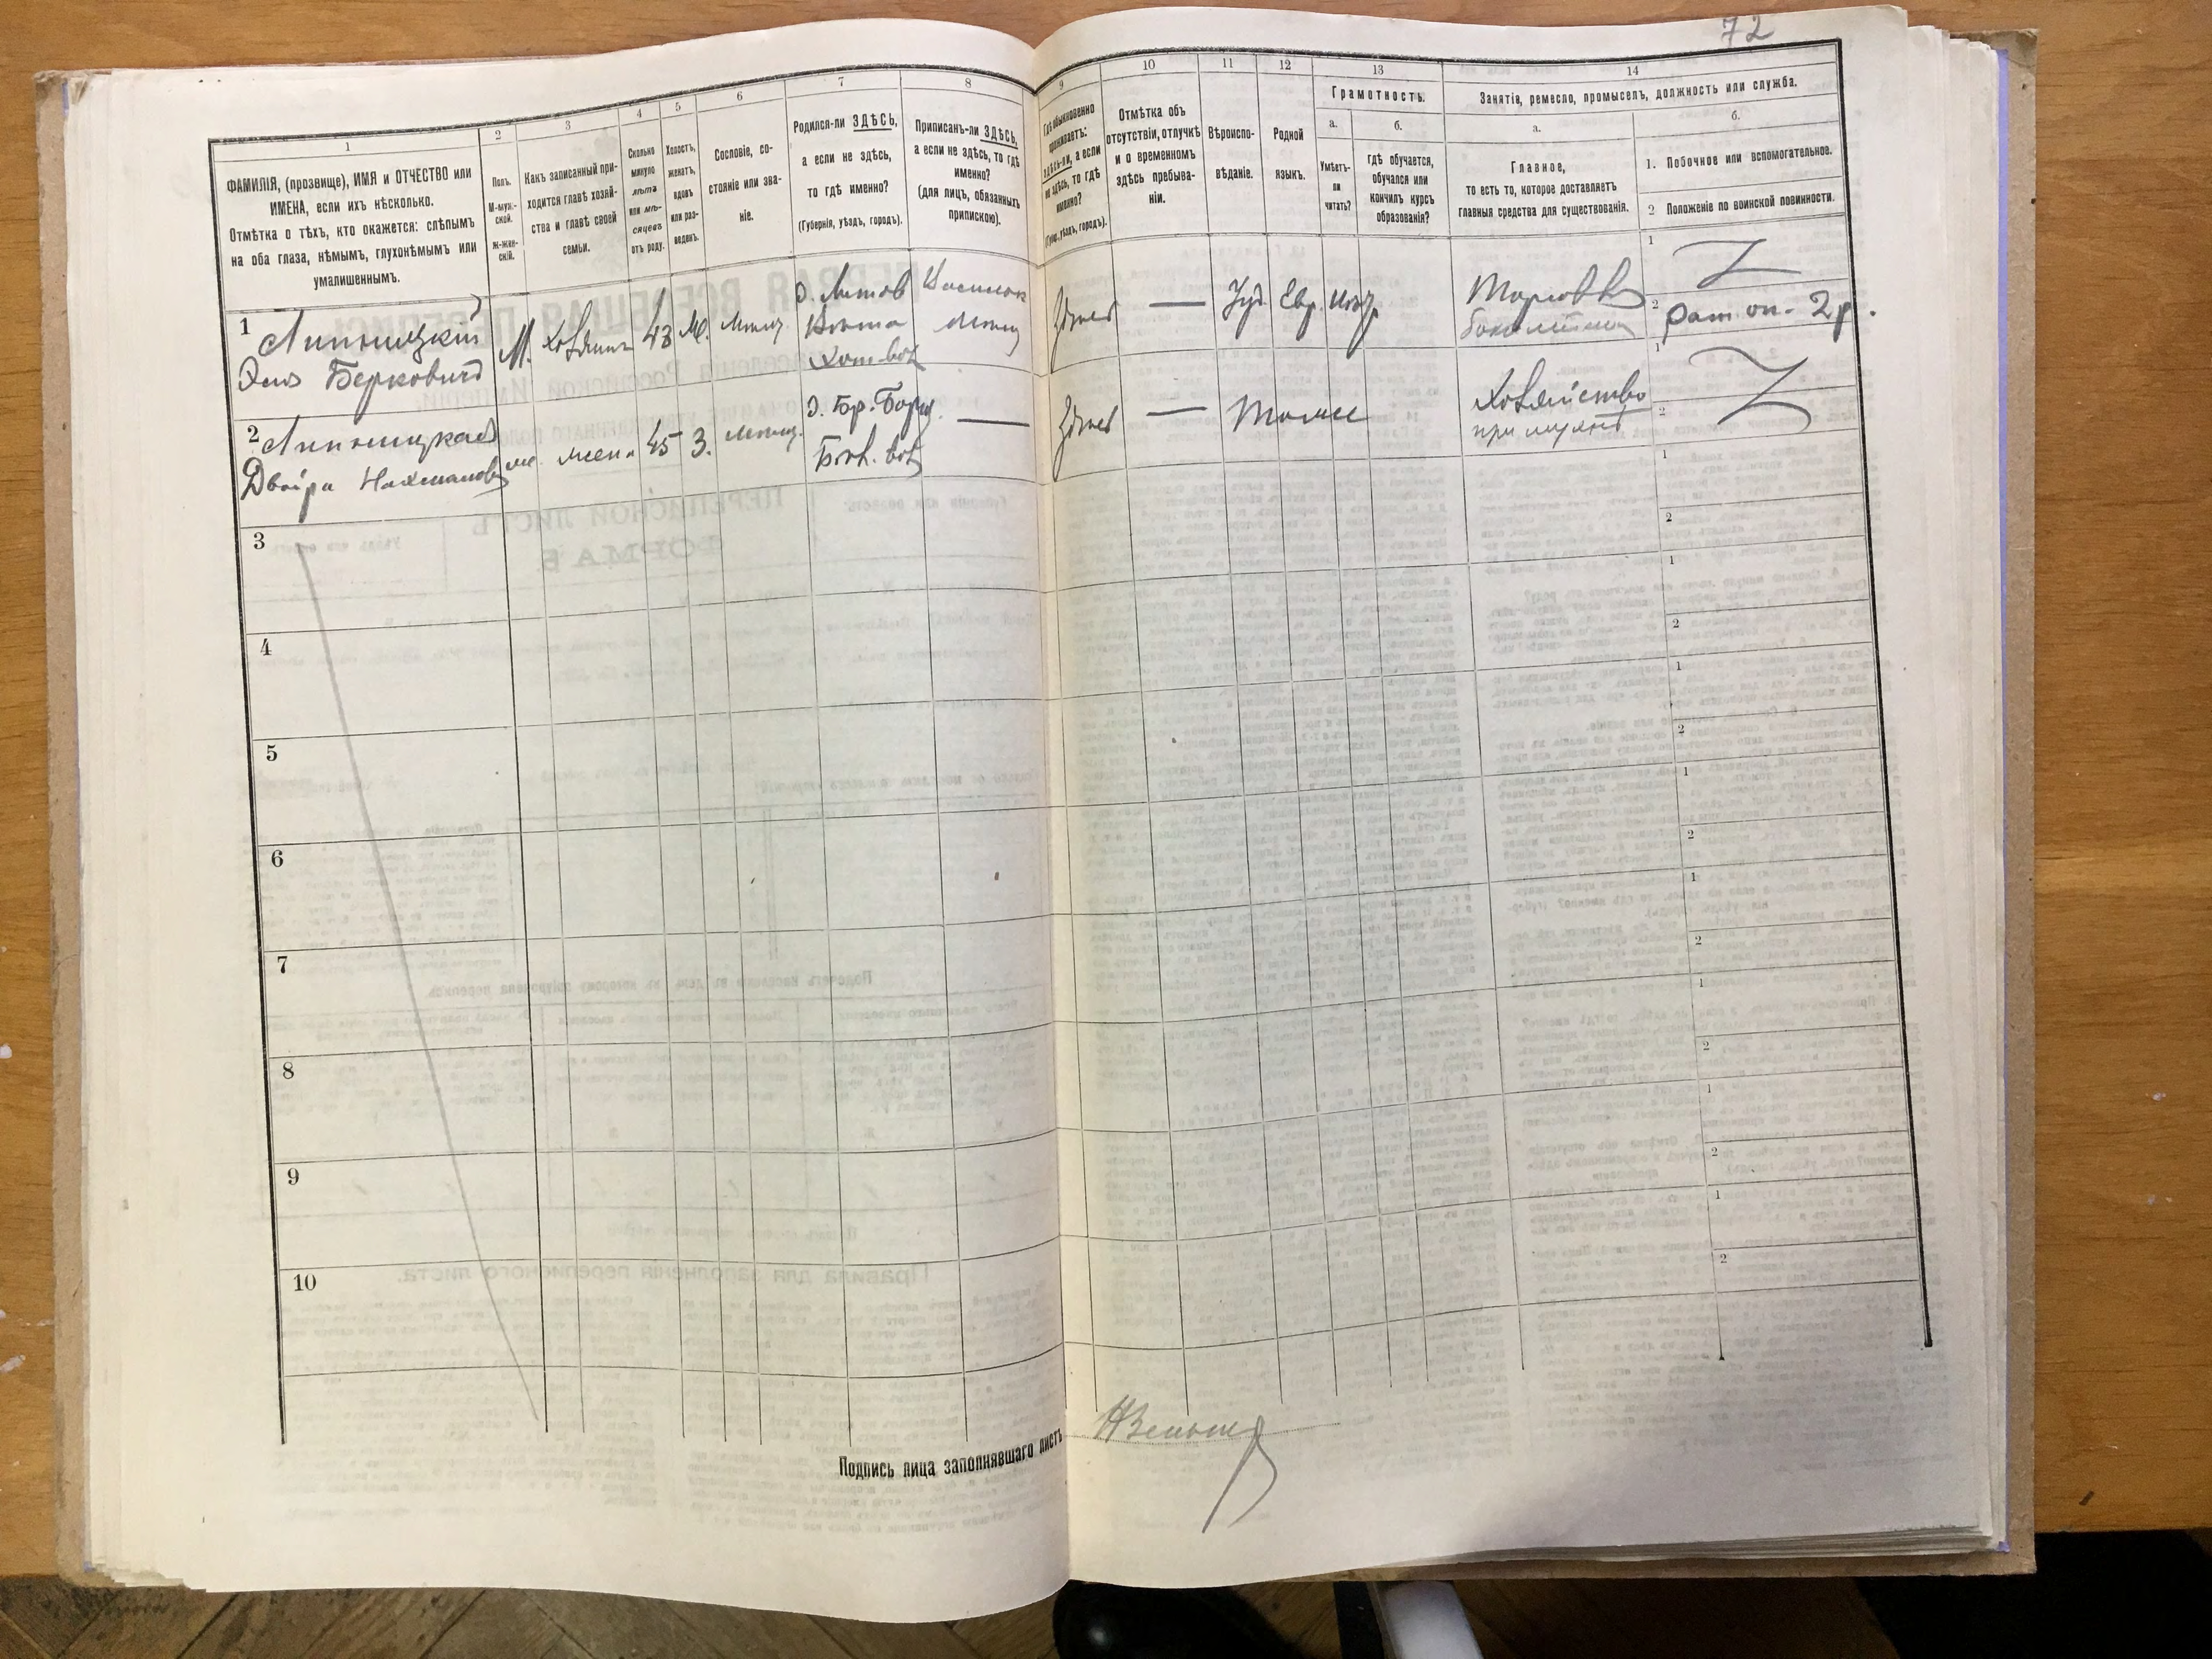 72
1
2
3
4
5
6
7
8
9
10
11
12
13
14
ФАМИЛІЯ, (прозвище), ИМЯ и ОТЧЕСТВО или
ИМЕНА, если ихъ нѣсколько.
Отмѣтка о тѣхъ, кто окажется: слѣпымъ
на оба глаза, нѣмымъ, глухонѣмымъ или
умалишеннымъ.
Полъ.
М-муж-
ской.
Ж-жен-
скій.
Какъ записанный при-
ходится главѣ хозяй-
ства и главѣ своей
семьи.
Сколько
минуло
лѣтъ
или мѣ-
сяцевъ
отъ роду.
Холостъ,
женатъ,
вдовъ
или раз-
веденъ.
Сословіе, со-
стояніе или зва-
ніе.
Родился-ли ЗДѢСЬ,
а если не здѣсь,
то гдѣ именно?
(Губернія, уѣздъ, городъ).
Приписанъ-ли ЗДѢСЬ,
а если не здѣсь, то гдѣ
именно?
(для лицъ, обязанныхъ
припискою).
Гдѣ обыкновенно
проживаетъ:
здѣсь-ли, а если
не здѣсь, то гдѣ
именно?
(Губ., уѣздъ, городъ).
Отмѣтка объ
отсутствіи, отлучкѣ
и о временномъ
здѣсь пребыва-
ніи.
Вѣроиспо-
вѣданіе.
Родной
языкъ.
Грамотность.
а.
Умѣетъ-
ли
читать?
б.
гдѣ обучается,
обучался или
кончилъ курсъ
образованія?
Занятіе, ремесло, промыселъ, должность или служба.
а.
Главное,
то есть то, которое доставляетъ
главныя средства для существованія.
б.
1. Побочное или вспомогательное.
2 Положеніе по воинской повинности.
1 Липницкій
Эля Берковичъ
М. Хозяинъ 43 Ж. Мѣщ.
Здѣсь — Іуд. Евр.
1
2 рат. оп. 2 р.
2 Липницкая
Двойра Нахманов
же. жена 45 З. мѣщ.
— Здѣсь — Тоже
Хозяйство
при мужѣ
1
2
3
1
2
4
1
2
5
1
2
6
1
2
7
1
2
8
1
2
9
1
2
10
1
2
Подпись лица заполнявшаго листъ